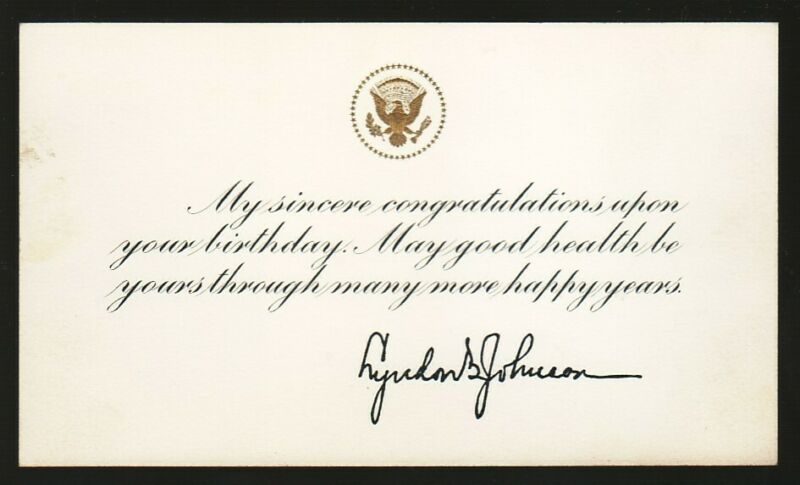 My sincere congratulations upon
your birthday. May good health be
yours through many more happy years.
Lyndon B Johnson